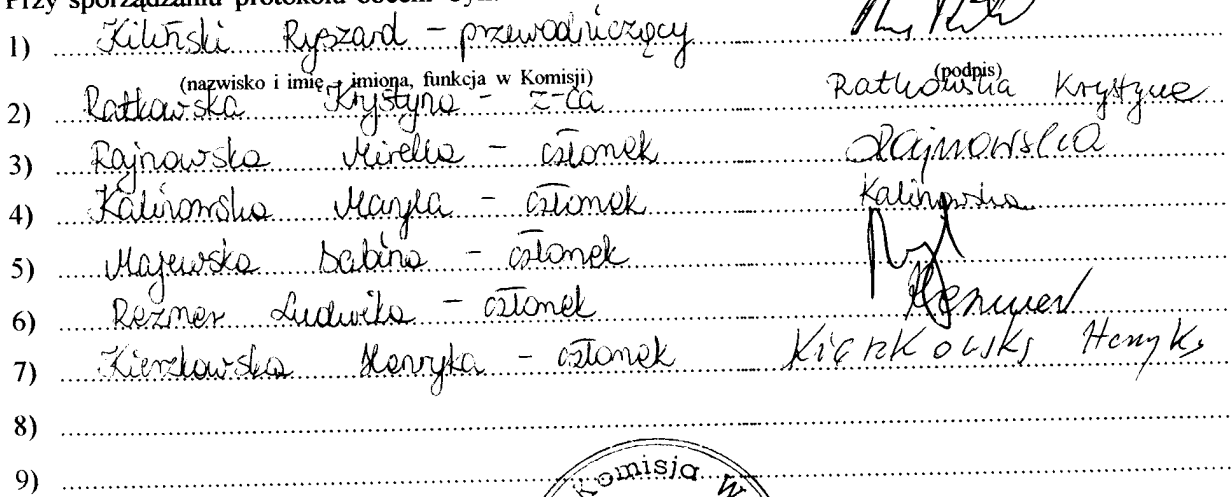 Przy sporządzaniu protokołu obecni byli
1) Kiliński Ryszard - przewodniczący
(nazwisko i imię - imiona, funkcja w Komisji) (podpis)
2) Ratkowska Krystyna - z-ca Ratkowska Krystyna
3) Rajnowska Mirella - członek Rajnowska
4) Kalinowska Maryla - członek Kalinowska
5) Majewska Sabina - członek
6) Rezmer Ludwika - członek Rezmer
7) Kierzkowska Henryka - członek
8)
9)
Komisja W